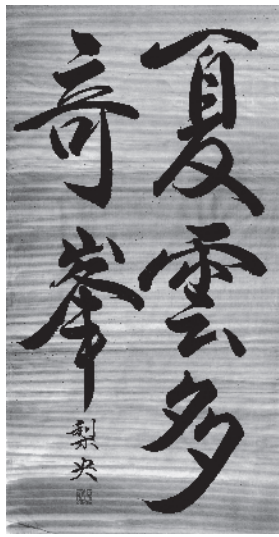 夏雲多
奇峯
梨央